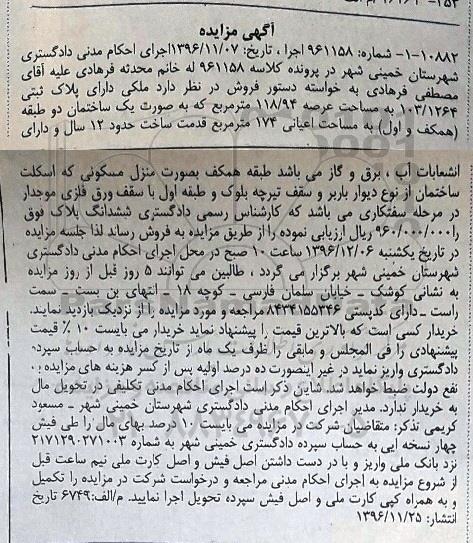 آگهی مزایده
۱۰۸۸۲-۱- شماره: ۹۶۱۱۵۸ اجرا ، تاریخ: ۱۳۹۶/۱۱/۰۷اجرای احکام مدنی دادگستری
شهرستان خمینی شهر در پرونده کلاسه ۹۶۱۱۵۸ له خانم محدثه فرهادی علیه آقای
مصطفی فرهادی به خواسته دستور فروش در نظر دارد ملکی دارای پلاک ثبتی
۱۰۳/۱۲۶۴ به مساحت عرصه ۱۱۸/۹۴ مترمربع که به صورت یک ساختمان دو طبقه
(همکف و اول) به مساحت اعیانی ۱۷۴ مترمربع قدمت ساخت حدود ۱۲ سال و دارای
انشعابات آب ، برق و گاز می باشد طبقه همکف بصورت منزل مسکونی که اسکلت
ساختمان از نوع دیوار باربر و سقف تیرچه بلوک و طبقه اول با سقف ورق فلزی موجدار
در مرحله سفتکاری می باشد که کارشناس رسمی دادگستری ششدانگ پلاک فوق
را۹۶۰/۰۰۰/۰۰۰ ریال ارزیابی نموده را از طریق مزایده به فروش رساند لذا جلسه مزایده
در تاریخ یکشنبه ۱۳۹۶/۱۲/۰۶ ساعت ۱۰ صبح در محل اجرای احکام مدنی دادگستری
شهرستان خمینی شهر برگزار می گردد ، طالبین می توانند ۵ روز قبل از روز مزایده
به نشانی کوشک ـ خیابان سلمان فارسی ـ کوچه ۱۸ ـ انتهای بن بست ـ سمت
راست ـ دارای کدپستی ۸۴۳۴۱۵۵۳۴۶ مراجعه و مورد مزایده را از نزدیک بازدید نمایند.
خریدار کسی است که بالاترین قیمت را پیشنهاد نماید خریدار می بایست ۱۰ ٪ قیمت
پیشنهادی را فی المجلس و مابقی را ظرف یک ماه از تاریخ مزایده به حساب سپرده
دادگستری واریز نماید در غیر اینصورت ده درصد اولیه پس از کسر هزینه های مزایده به
نفع دولت ضبط خواهد شد. شایان ذکر است اجرای احکام مدنی تکلیفی در تحویل مال
به خریدار ندارد. مدیر اجرای احکام مدنی دادگستری شهرستان خمینی شهر ـ مسعود
کریمی تذکر: متقاضیان شرکت در مزایده می بایست ۱۰ درصد بهای مال را طی فیش
چهار نسخه ایی به حساب سپرده دادگستری خمینی شهر به شماره ۲۱۷۱۲۹۰۲۷۱۰۰۳
نزد بانک ملی واریز و با در دست داشتن اصل فیش و اصل کارت ملی نیم ساعت قبل
از شروع مزایده به اجرای احکام مدنی مراجعه و درخواست شرکت در مزایده را تکمیل
و به همراه کپی کارت ملی و اصل فیش سپرده تحویل اجرا نمایید. م/الف:۶۷۴۹ تاریخ
انتشار: ۱۳۹۶/۱۱/۲۵